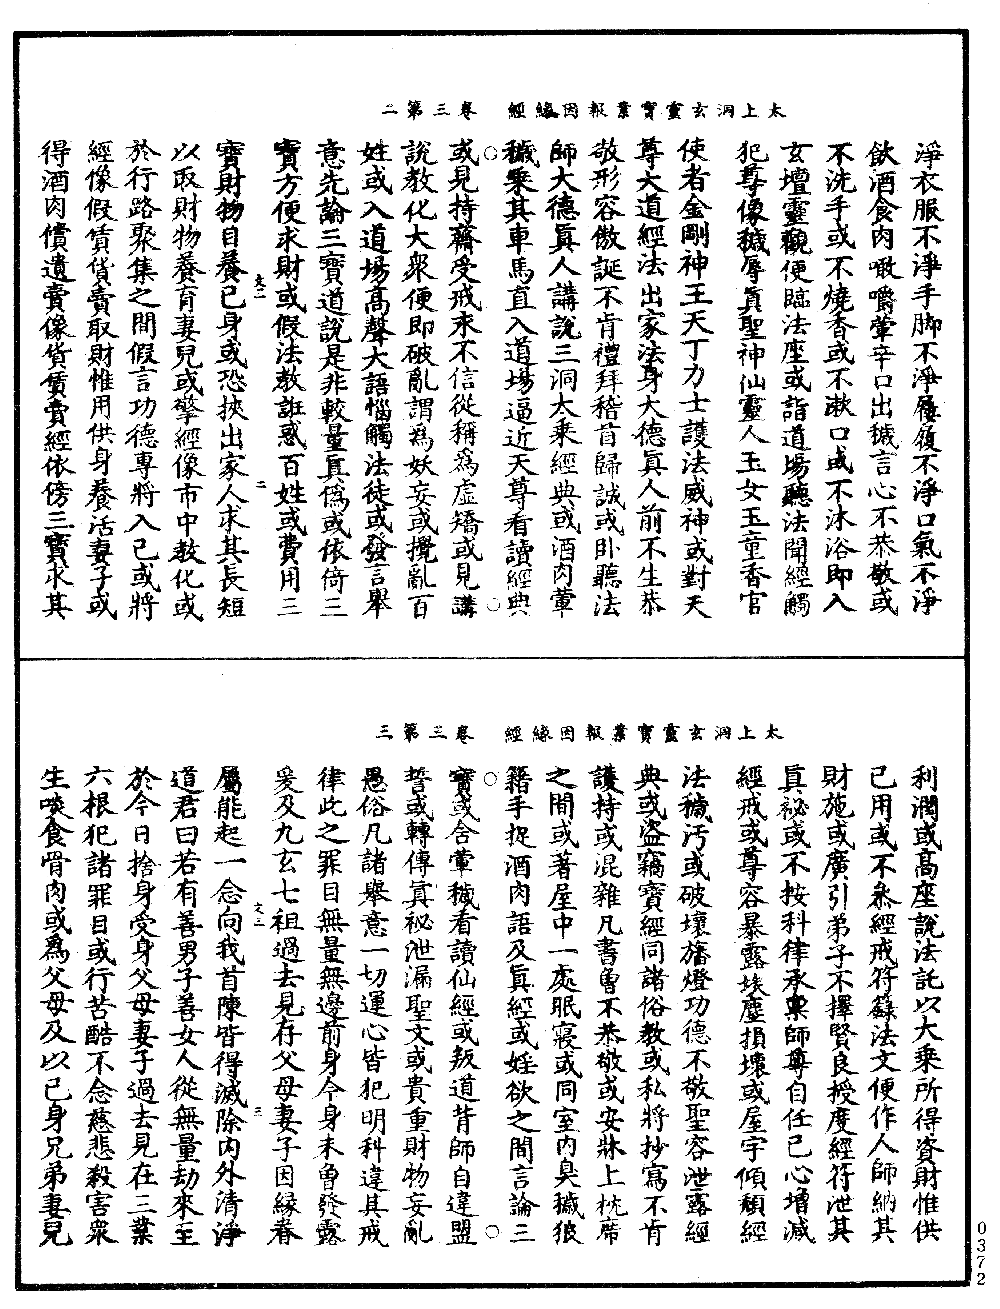 太上洞玄靈寶業報因緣經 卷三第二
淨衣服不淨手脚不淨屨履不淨口氣不淨
飲酒食肉噉嚼葷辛口出穢言心不恭敬或
不洗手或不燒香或不漱口或不沐浴即入
玄壇靈觀便臨法座或詣道場聽法聞經觸
犯尊像穢辱真聖神仙靈人玉女玉童香官
使者金剛神王天丁力士護法威神或對天
尊大道經法出家法身大德真人前不生恭
敬形容傲誕不肯禮拜稽首歸誠或卧聽法
師大德真人講說三洞大乘經典或酒肉葷
穢乘其車馬直入道場逼近天尊看讀經典
或見持齋受戒永不信從稱為虛矯或見講
說教化大衆便即破亂謂為妖妄或攪亂百
姓或入道場高聲大語惱觸法徒或發言舉
意先論三寶道說是非較量真偽或依倚三
寶方便求財或假法教誑惑百姓或費用三
文二 二
寶財物自養已身或恐挾出家人求其長短
以取財物養育妻兒或擎經像市中教化或
於行路聚集之間假言功德專將入己或將
經像假賃貨賣取財惟用供身養活妻子或
得酒肉償遺賣像貨賃賣經依傍三寶求其
太上洞玄靈寶業報因緣經 卷三第三
利潤或高座說法託以大乘所得資財惟供
已用或不糸經戒符籙法文便作人師納其
財施或廣引弟子不擇賢良授度經符泄其
真祕或不按科律承稟師尊自任已心增減
經戒或尊容暴露埃塵損壞或屋宇傾頹經
法穢汚或破壞旛燈功德不敬聖容泄露經
典或盜竊寶經同諸俗教或私將抄寫不肯
護持或混雜凡書曾不恭敬或安牀上枕席
之間或著屋中一處眠寢或同室内臭穢狼
籍手捉酒肉語及真經或婬欲之間言論三
寶或含葷穢看讀仙經或叛道背師自違盟
誓或轉傳真祕泄漏聖文或貴重財物妄亂
愚俗凡諸舉意一切運心皆犯明科違其戒
律此之罪目無量無邊前身今身未曾發露
爰及九玄七祖過去見存父母妻子因緣眷
文三 三
屬能起一念向我首陳皆得滅除内外清淨
道君曰若有善男子善女人從無量劫來至
於今日捨身受身父母妻子過去見在三業
六根犯諸罪目或行苦酷不念慈悲殺害衆
生啖食骨肉或為父母及以已身兄弟妻兒
0372